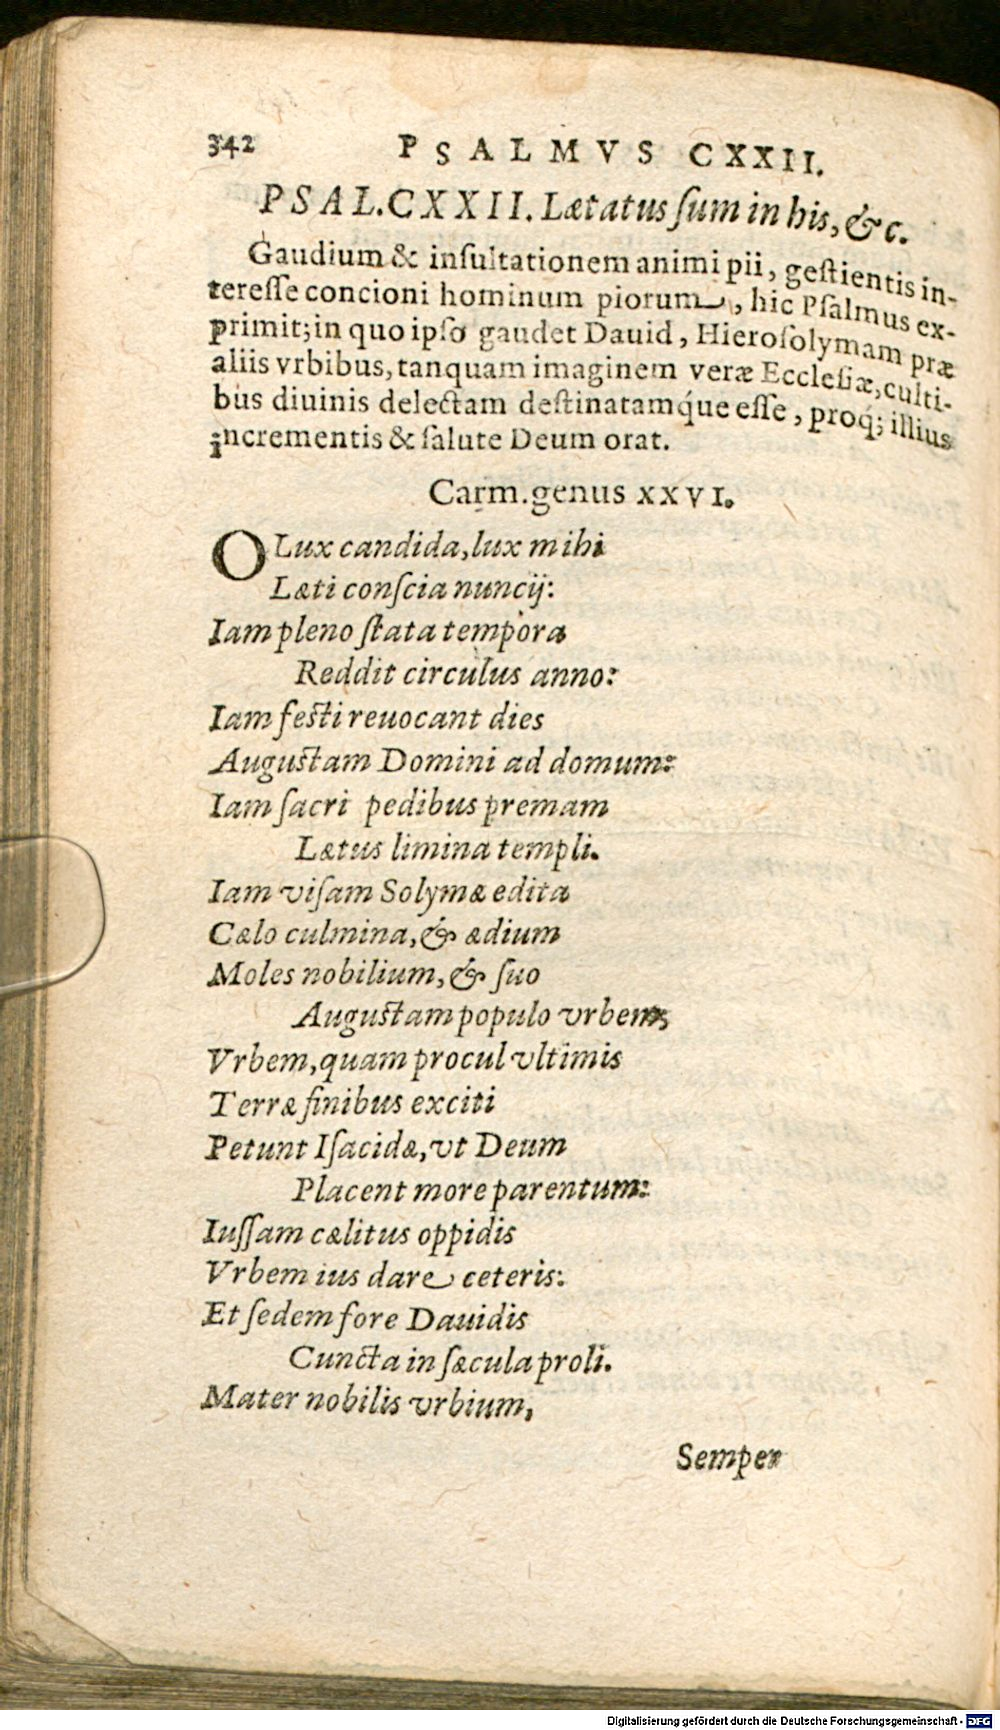 342 PSALMVS CXXII.
PSAL.CXXII. Lætatus ſum in his, &c.
Gaudium & inſultationem animi pii, geſtientis in-
tereſſe concioni hominum piorum, hic Pſalmus ex-
primit; in quo ipſo gaudet Dauid, Hieroſolymam præ
aliis vrbibus, tanquam imaginem veræ Eccleſiæ, culti-
bus diuinis delectam deſtinatamq́ue eſſe, proq́; illius
incrementis & ſalute Deum orat.
Carm. genus XXVI.
O Lux candida, lux mihi
Læti conſcia nuncij:
Iam pleno ſtata tempora
Reddit circulus anno:
Iam feſti reuocant dies
Auguſtam Domini ad domum:
Iam ſacri pedibus premam
Lætus limina templi.
Iam viſam Solymæ edita
Cælo culmina, & ædium
Moles nobilium, & ſuo
Auguſtam populo vrbem,
Vrbem, quam procul vltimis
Terræ finibus exciti
Petunt Iſacidæ, vt Deum
Placent more parentum:
Iuſſam cælitus oppidis
Vrbem ius dare ceteris:
Et ſedem fore Dauidis
Cuncta in ſæcula proli.
Mater nobilis vrbium,
Semper
Digitalisierung gefördert durch die Deutsche Forschungsgemeinschaft - DFG